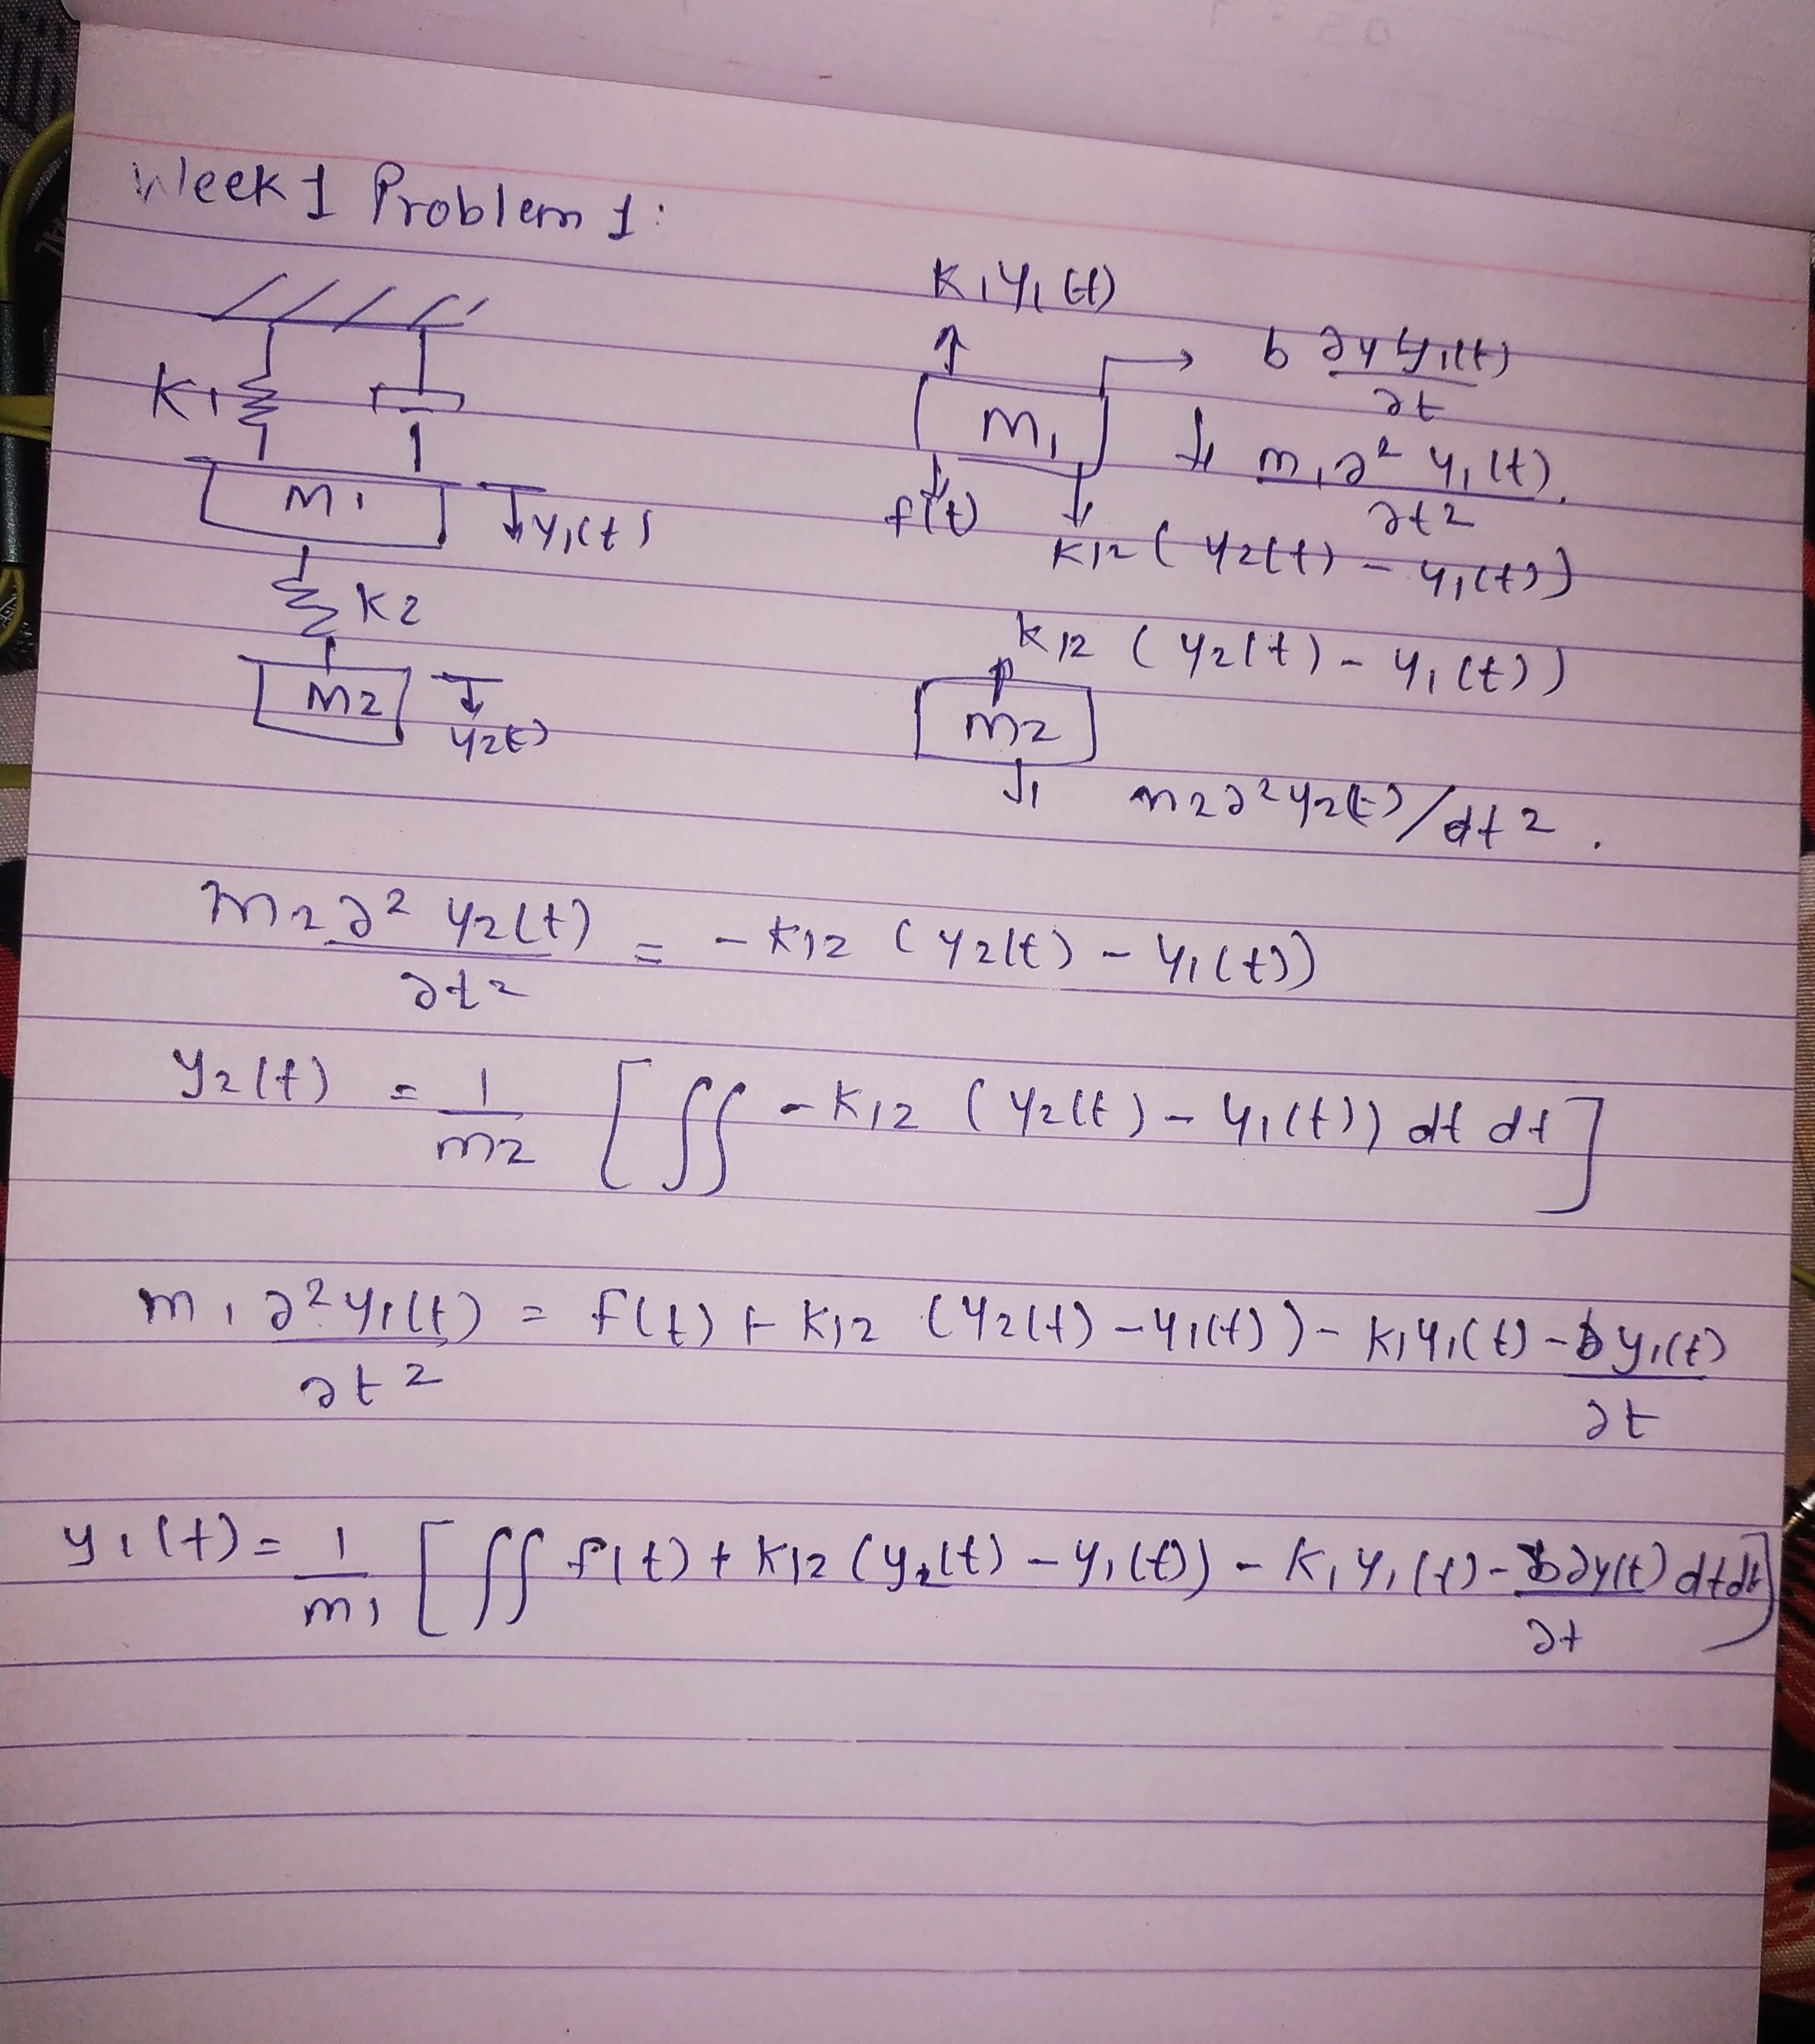 Week 1 Problem 1:
K1
m1
y1(t)
K2
m2
y2(t)
K1y1(t)
b ∂y y1(t)
∂t
m1
m1∂² y1(t).
∂t2
f(t)
K12 ( y2(t) - y1(t))
K12 ( y2(t) - y1(t))
m2
m2∂2y2(t)/dt2.
m2∂2 y2(t) = - K12 ( y2(t) - y1(t))
∂t2
y2(t) = 1 [∬ - K12 ( y2(t) - y1(t)) dt dt]
m2
m1 ∂2y1(t) = f(t) + K12 (y2(t) - y1(t)) - K1y1(t) - b y1(t)
∂t2 ∂t
y1(t) = 1 [∬ f(t) + K12 (y2(t) - y1(t)) - K1y1(t) - b∂y(t) dtdt]
m1 ∂t